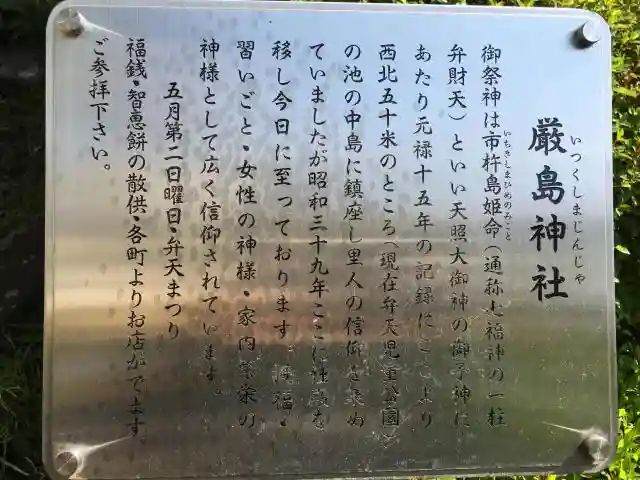 厳島神社
いつくしまじんじゃ
御祭神は市杵島姫命(通称七福神の一柱
いちきしまひめのみこと
弁財天)といい天照大御神の御子神に
あたり元禄十五年の記録にここより
西北五十米のところ(現在弁天児童公園)
の池の中島に鎮座し里人の信仰を集め
ていましたが昭和三十九年ここに社殿を
移し今日に至っております。開福・
習いごと・女性の神様・家内繁栄の
神様として広く信仰されています。
五月第二日曜日・弁天まつり
福銭・智恵餅の散供・各町よりお店がでます。
ご参拝下さい。